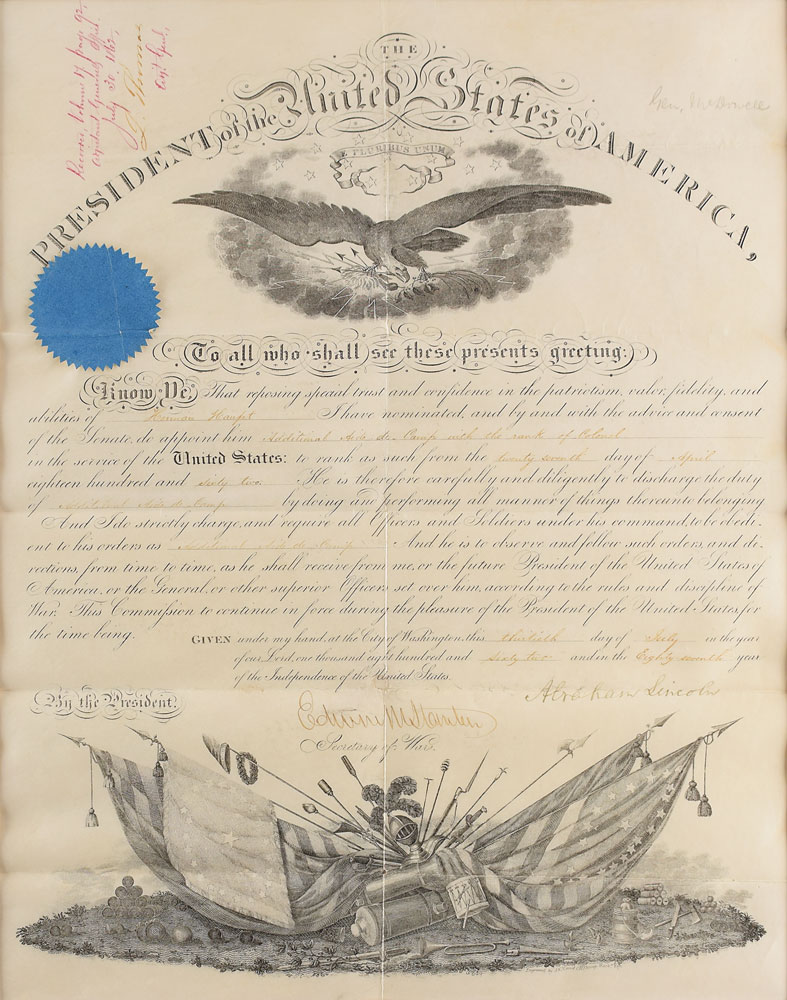 Records Volume 17 page 92
Adjutant General's Office
July 30. 1862.
L. Thomas
Adjt Genl.
Gen. McDowell
THE
PRESIDENT of the United States of AMERICA,
E PLURIBUS UNUM
To all who shall see these presents greeting:
Know Ye, That reposing special trust and confidence in the patriotism, valor, fidelity, and
abilities of Herman Haupt I have nominated, and by and with the advice and consent
of the Senate, do appoint him Additional Aide-de-Camp with the rank of Colonel
in the service of the United States: to rank as such from the twenty seventh day of April
eighteen hundred and sixty two. He is therefore carefully and diligently to discharge the duty
of Additional Aide-de-Camp by doing and performing all manner of things thereunto belonging
And I do strictly charge, and require all Officers and Soldiers under his command, to be obedi-
ent to his orders as Additional Aide-de-Camp And he is to observe and follow such orders, and di-
rections, from time to time, as he shall receive from me, or the future President of the United States of
America, or the General, or other superior Officers set over him, according to the rules and discipline of
War. This Commission to continue in force during the pleasure of the President of the United States, for
the time being.
GIVEN under my hand, at the City of Washington, this thirtieth day of July in the year
of our Lord, one thousand eight hundred and sixty two and in the Eighty seventh year
of the Independence of the United States.
Abraham Lincoln
By the President.
Edwin M Stanton
Secretary of War.